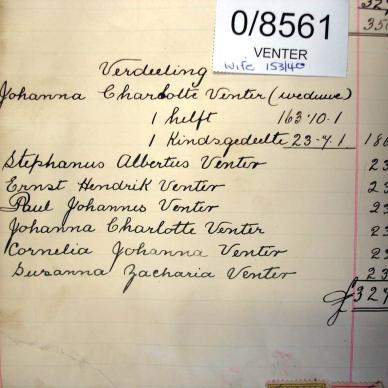 327
350
0/8561
VENTER
Wife 153/40
Verdeeling
Johanna Charlotte Venter (weduwe)
1 helft 163·10·1
1 Kindsgedeelte 23-7.1 186
Stephanus Albertus Venter 23
Ernst Hendrik Venter 23
Paul Johannes Venter 23
Johanna Charlotte Venter 23
Cornelia Johanna Venter 23
Susanna Zacharia Venter 23
£327